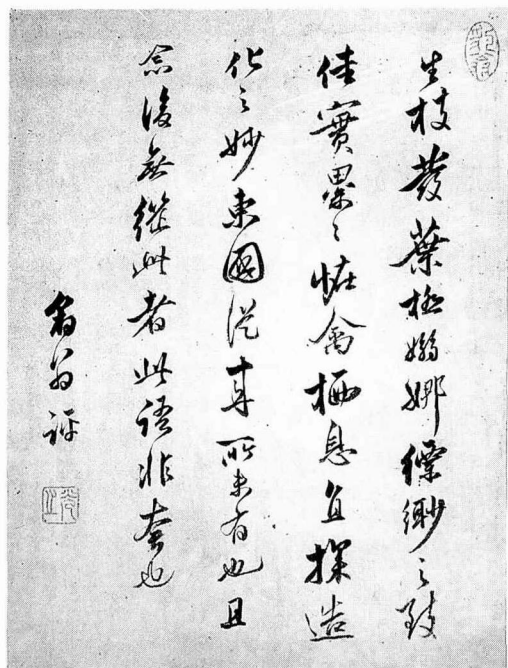 生枝發葉極嫋娜縹緲之致
佳實累〻恠禽栖息直探造
化之妙東國從來所未有也且
念後無繼此者此語非套也
翁評